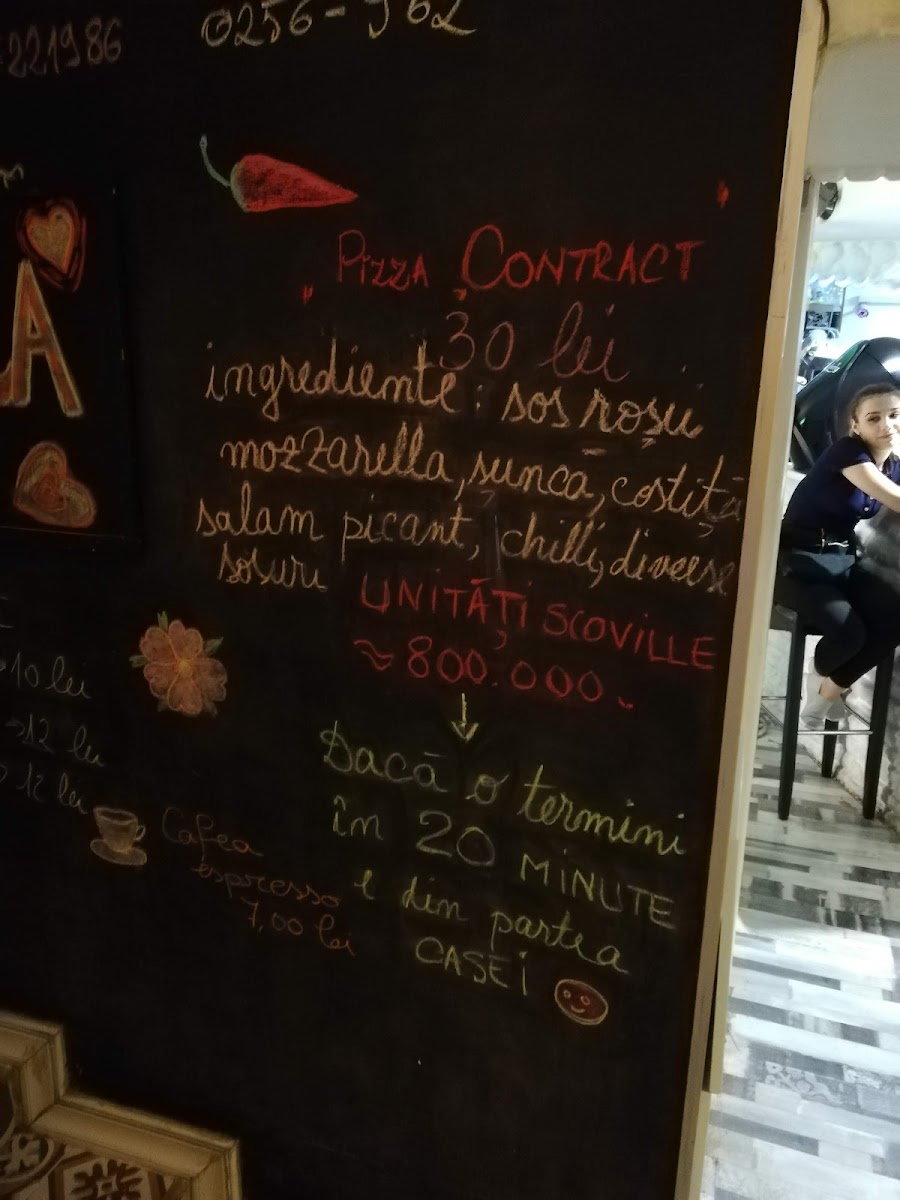 221986
0256-962
A
Pizza „Contract"
30 lei
ingrediente: sos roșii
mozzarella, șuncă, costiță
salam picant, chilli, diverse
sosuri
UNITĂȚI SCOVILLE
≈ 800.000.
↓
Dacă o termini
în 20 MINUTE
e din partea
CASEI
→10 lei
→12 lei
→12 lei
Cafea
espresso
7,00 lei